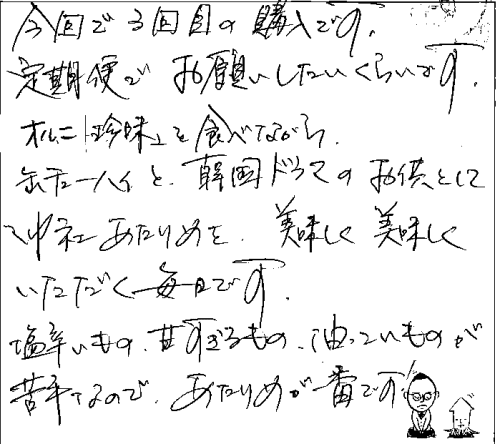 今回で3回目の購入です。
定期便でお願いしたいくらいです。
「珍味」を食べながら、
缶チューハイと、韓国ドラマのお供として
あたりめを、美味しく美味しく
いただく毎日です。
塩辛いもの、甘すぎるもの、油っこいものが
苦手なので、あたりめが一番です